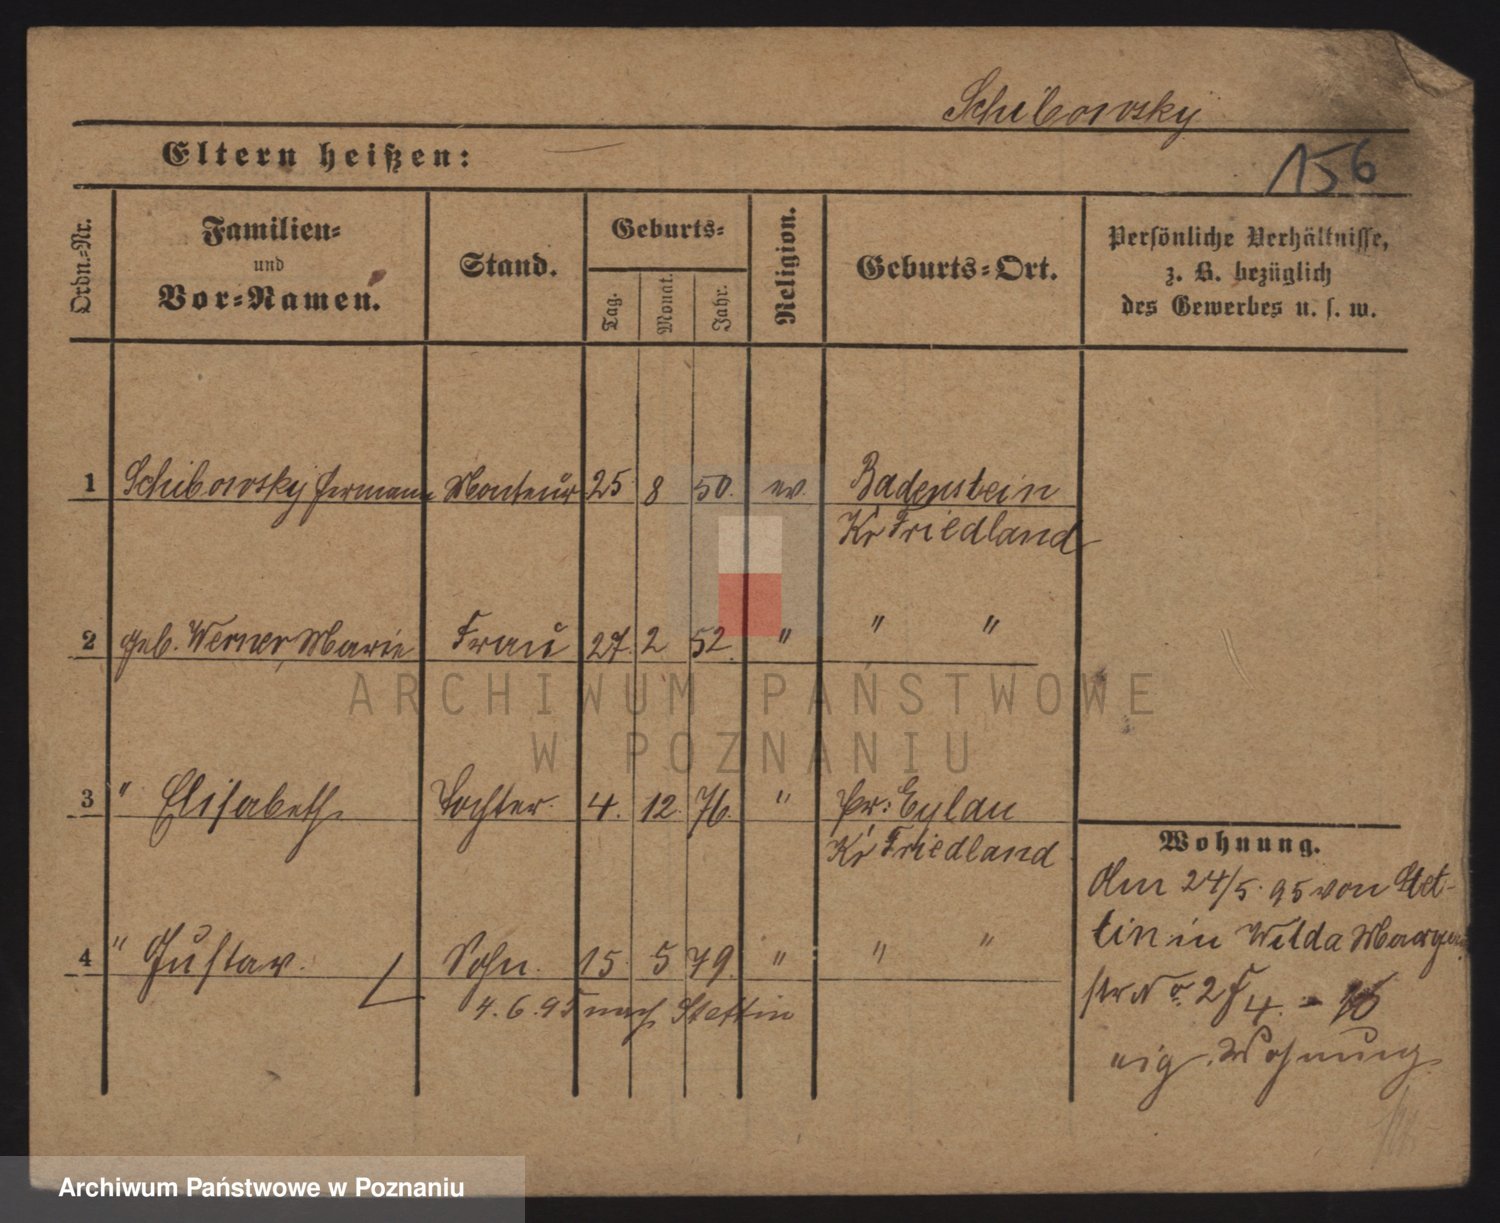 Schibowsky
Eltern heißen: —
156
Ordn.-Nr.
Familien-
und
Vor-Namen.
Stand.
Geburts-
Tag.
Monat.
Jahr.
Religion.
Geburts-Ort.
Persönliche Verhältnisse,
z. B. bezüglich
des Gewerbes u. s. w.
1 Schibowsky Hermann Monteur 25. 8 50. ev. Badenstein
Kr Friedland
2 geb. Werner, Marie Frau 27. 2 52. " " "
ARCHIWUM PAŃSTWOWE
W POZNANIU
3 " Elisabeth Tochter. 4. 12. 76. " Pr: Eylau
Kr Friedland
4 " Gustav. Sohn. 15. 5 79. " " "
4.6.95 nach Stettin
Wohnung.
Am 24/5. 95 von Stet-
tin in Wilda
str No. 2 F 4. - 
eig. Wohnung
Archiwum Państwowe w Poznaniu